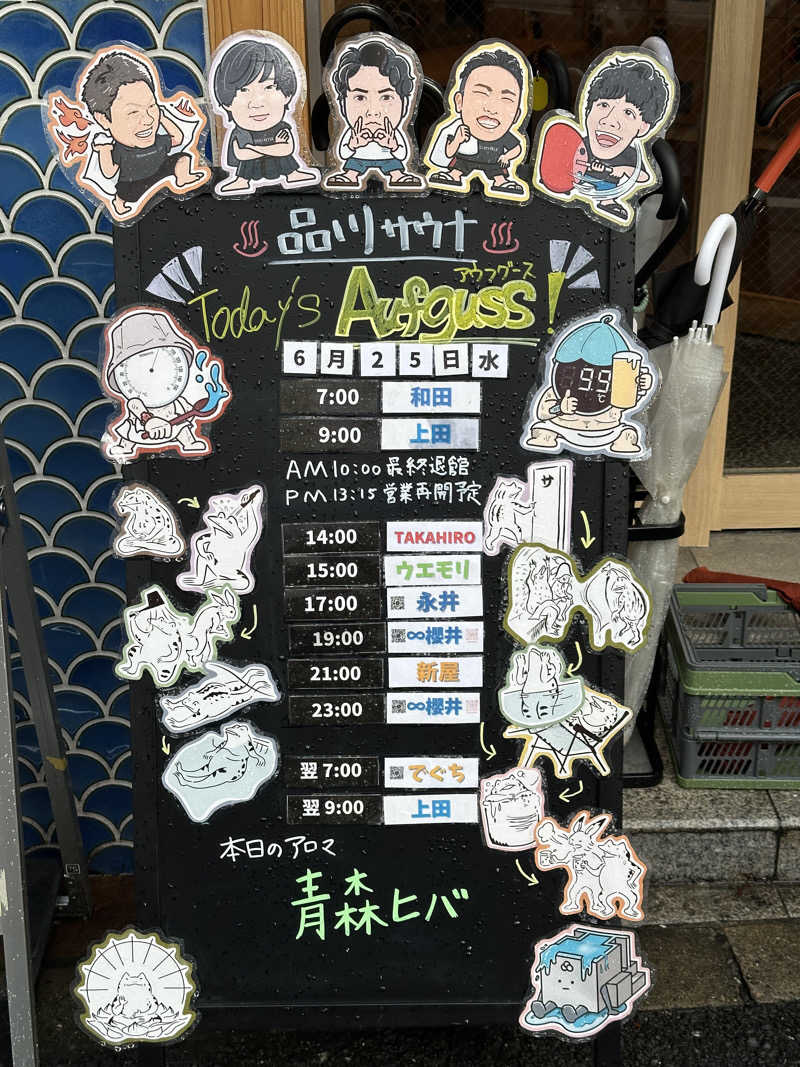 品川サウナ
アウフグース
Today's Aufguss!
6月25日水
7:00 和田
9:00 上田
AM10:00 最終退館
PM13:15 営業再開予定
サ
14:00 TAKAHIRO
15:00 ウエモリ
17:00 永井
19:00 ∞櫻井
21:00 新屋
23:00 ∞櫻井
翌7:00 でぐち
翌9:00 上田
本日のアロマ
青森ヒバ
9.9
℃